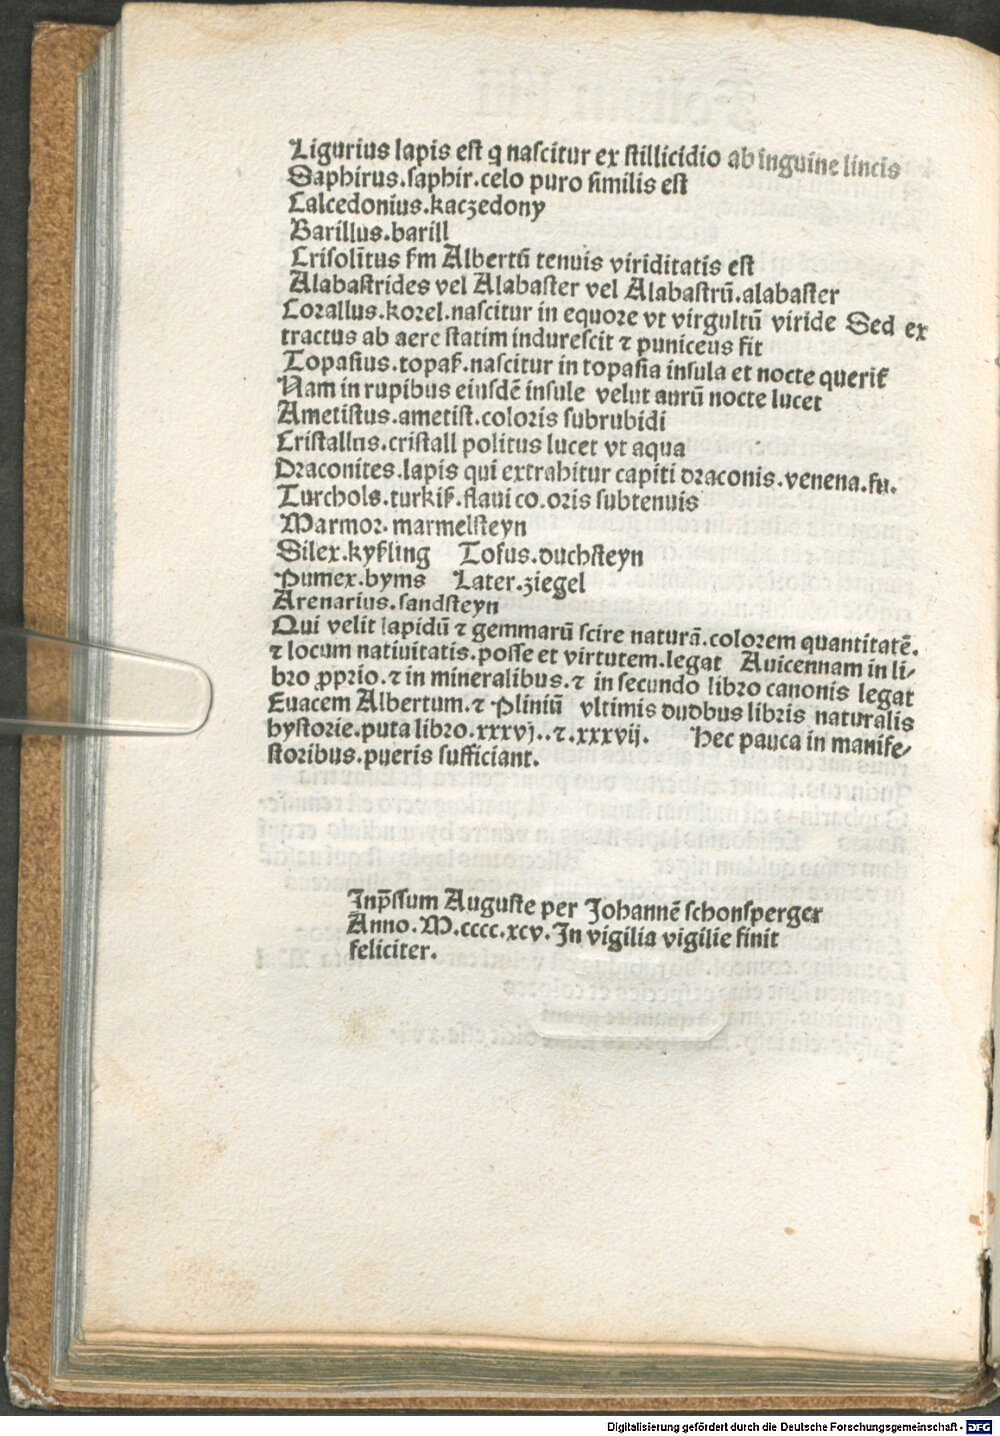 Ligurius lapis est q nascitur ex stillicidio ab inguine lincis
Saphirus.saphir.celo puro similis est
Calcedonius.kaczedony
Barillus.barill
Crisolitus s̄m Albertū tenuis viriditatis est
Alabastrides vel Alabaster vel Alabastrū.alabaster
Corallus.korel.nascitur in equore vt virgultū viride Sed ex
tractus ab aere statim indurescit ⁊ puniceus fit
Topasius.topaß.nascitur in topasia insula et nocte querit̄
Nam in rupibus eiusdē insule velut aurū nocte lucet
Ametistus.ametist.coloris subrubidi
Cristallus.cristall politus lucet vt aqua
Draconites.lapis qui extrahitur capiti draconis.venena.fu.
Turchols.turkiß.flaui co.oris subtenuis
Marmor.marmelsteyn
Silex.kyßling Tofus.duchsteyn
Pumex.byms Later.ziegel
Arenarius.sandsteyn
Qui velit lapidū ⁊ gemmarū scire naturā.colorem quantitatē.
⁊ locum natiuitatis.posse et virtutem.legat Auicennam in li-
bro ꝓprio.⁊ in mineralibus.⁊ in secundo libro canonis legat
Euacem Albertum.⁊ Pliniū vltimis duobus libris naturalis
hystorie.puta libro.xxxvj..⁊.xxxvij. Hec pauca in manife-
storibus.pueris sufficiant.
Inp̄ssum Auguste per Johannē schonsperger
Anno.M.cccc.xcv.In vigilia vigilie finit
feliciter.
Digitalisierung gefördert durch die Deutsche Forschungsgemeinschaft - DFG